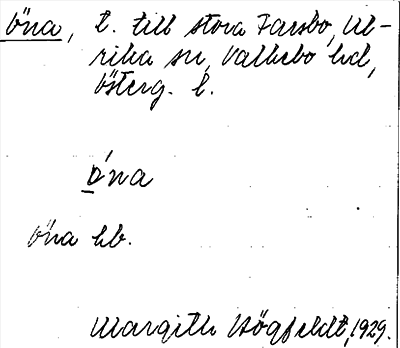 Öna, t. till stora Farsbo, Ul-
rika sn, Valkebo hd,
Österg. l.
ó̲na
Öna hb.
Margith Högfeldt, 1929.